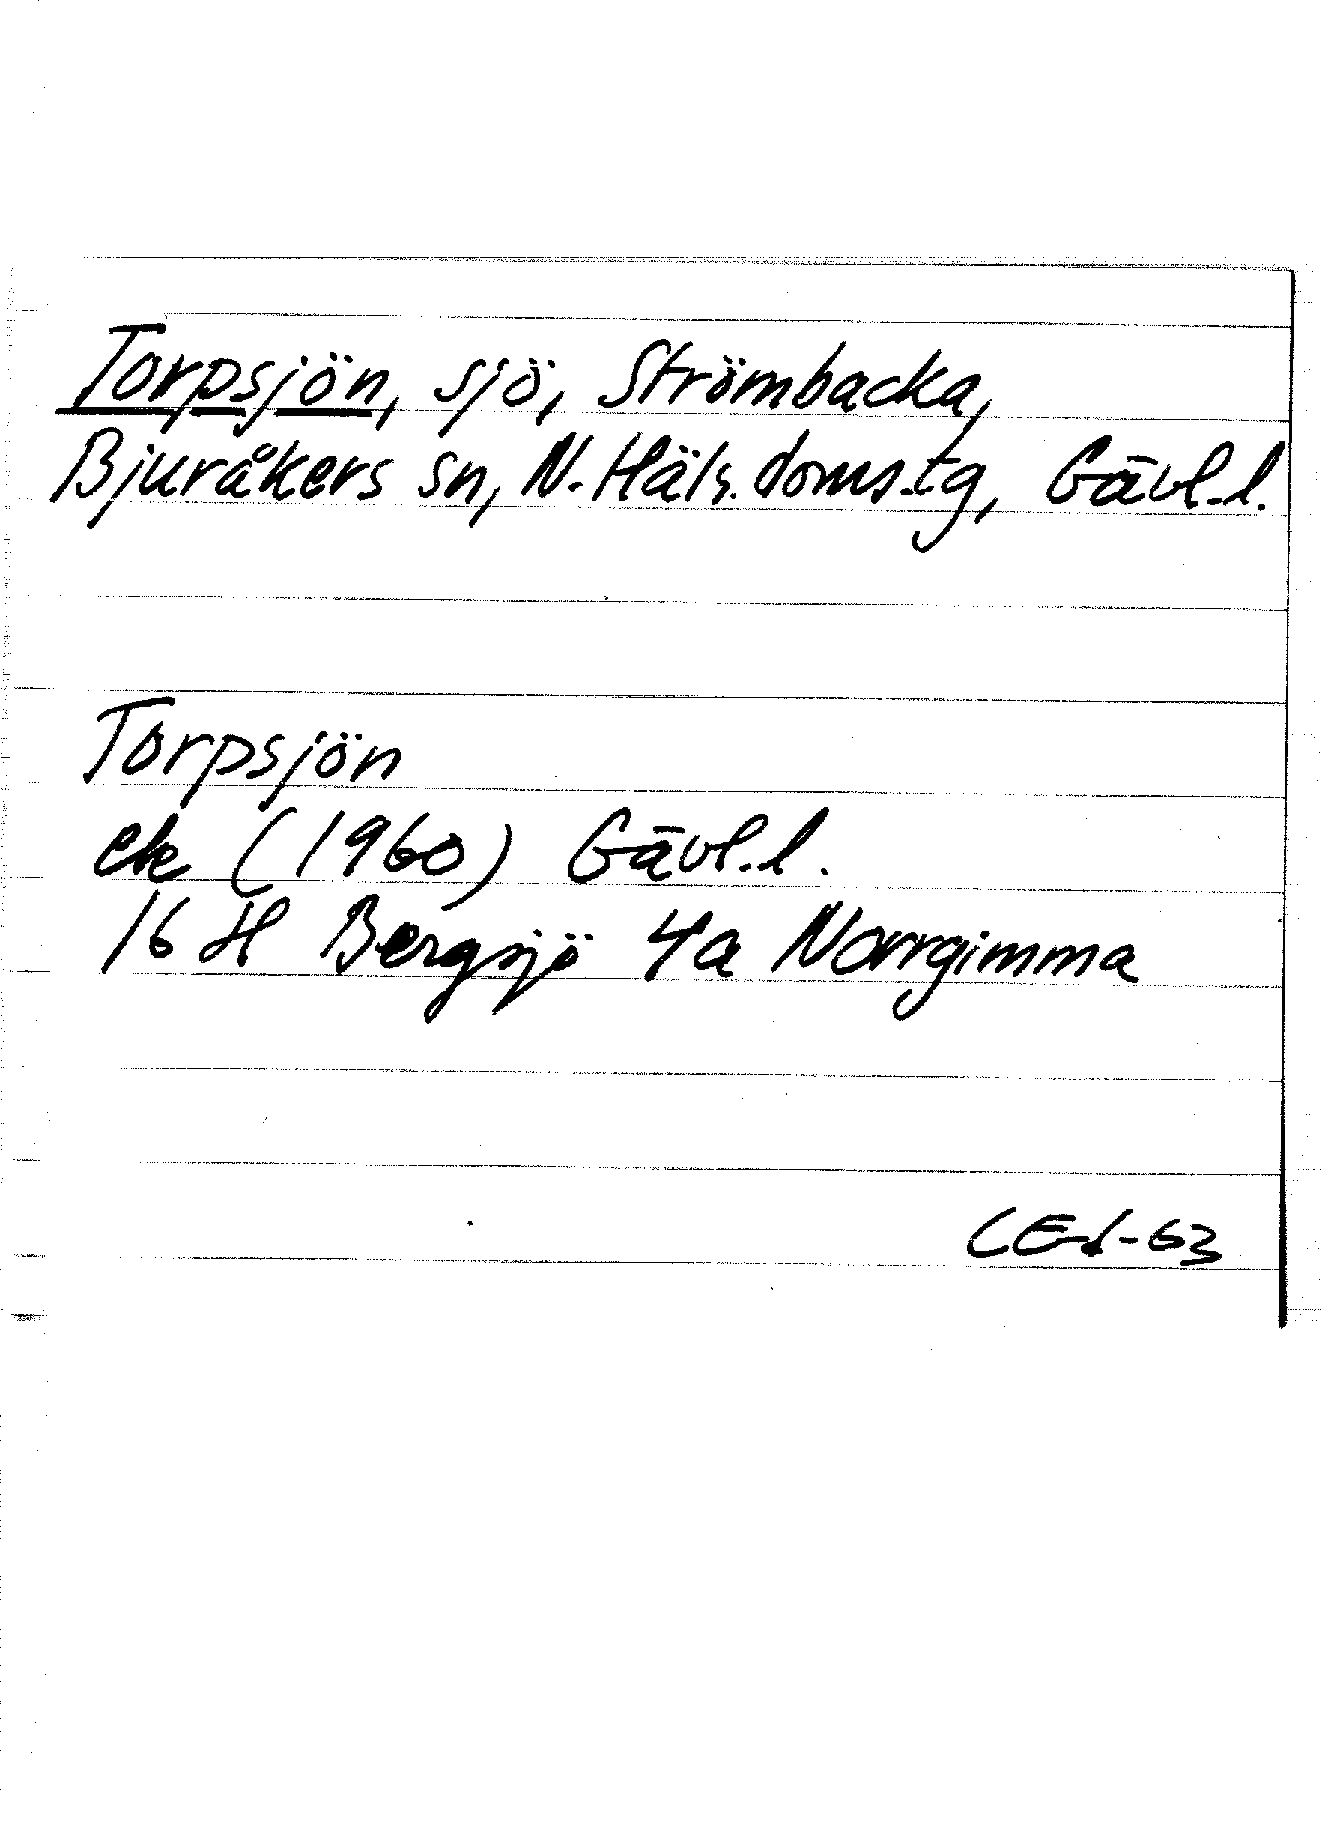 Torpsjön, sjö, Strömbacka,
Bjuråkers sn, N. Häls. doms.tg, Gävl.l.
Torpsjön
ek (1960) Gävl.l.
16 H Bergsjö 4a Norrgimma